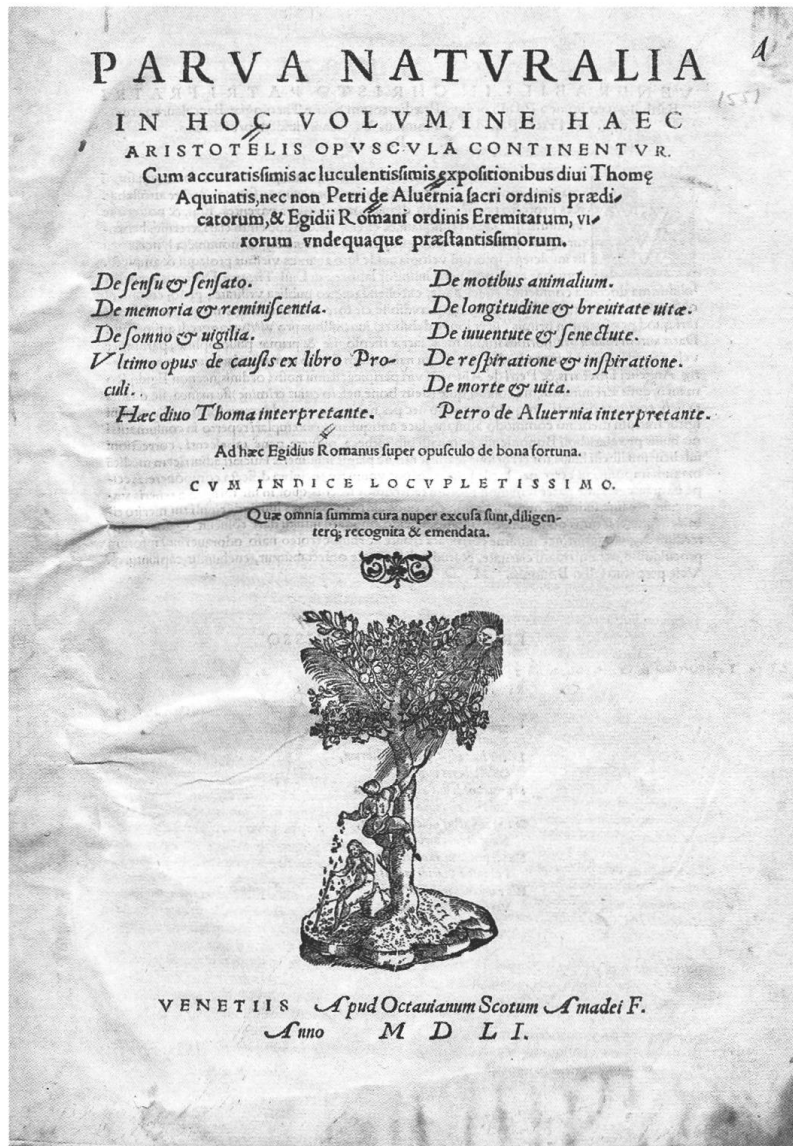 PARVA NATVRALIA
1
1551
IN HOC VOLVMINE HAEC
ARISTOTELIS OPVSCVLA CONTINENTVR.
Cum accuratiſſimis ac luculentiſſimis expoſitionibus diui Thomę
Aquinatis, nec non Petri de Aluernia ſacri ordinis prædi-
catorum, & Egidii Romani ordinis Eremitarum, vi-
rorum vndequaque præſtantiſſimorum.
De ſenſu & ſenſato.
De memoria & reminiſcentia.
De ſomno & uigilia.
Vltimo opus de cauſis ex libro Pro-
culi.
Hæc diuo Thoma interpretante.
De motibus animalium.
De longitudine & breuitate uitæ.
De iuuentute & ſenectute.
De reſpiratione & inſpiratione.
De morte & uita.
Petro de Aluernia interpretante.
Ad hæc Egidius Romanus ſuper opuſculo de bona fortuna.
CVM INDICE LOCVPLETISSIMO.
Quæ omnia ſumma cura nuper excuſa ſunt, diligen-
terq; recognita & emendata.
VENETIIS Apud Octauianum Scotum Amadei F.
Anno M D L I.